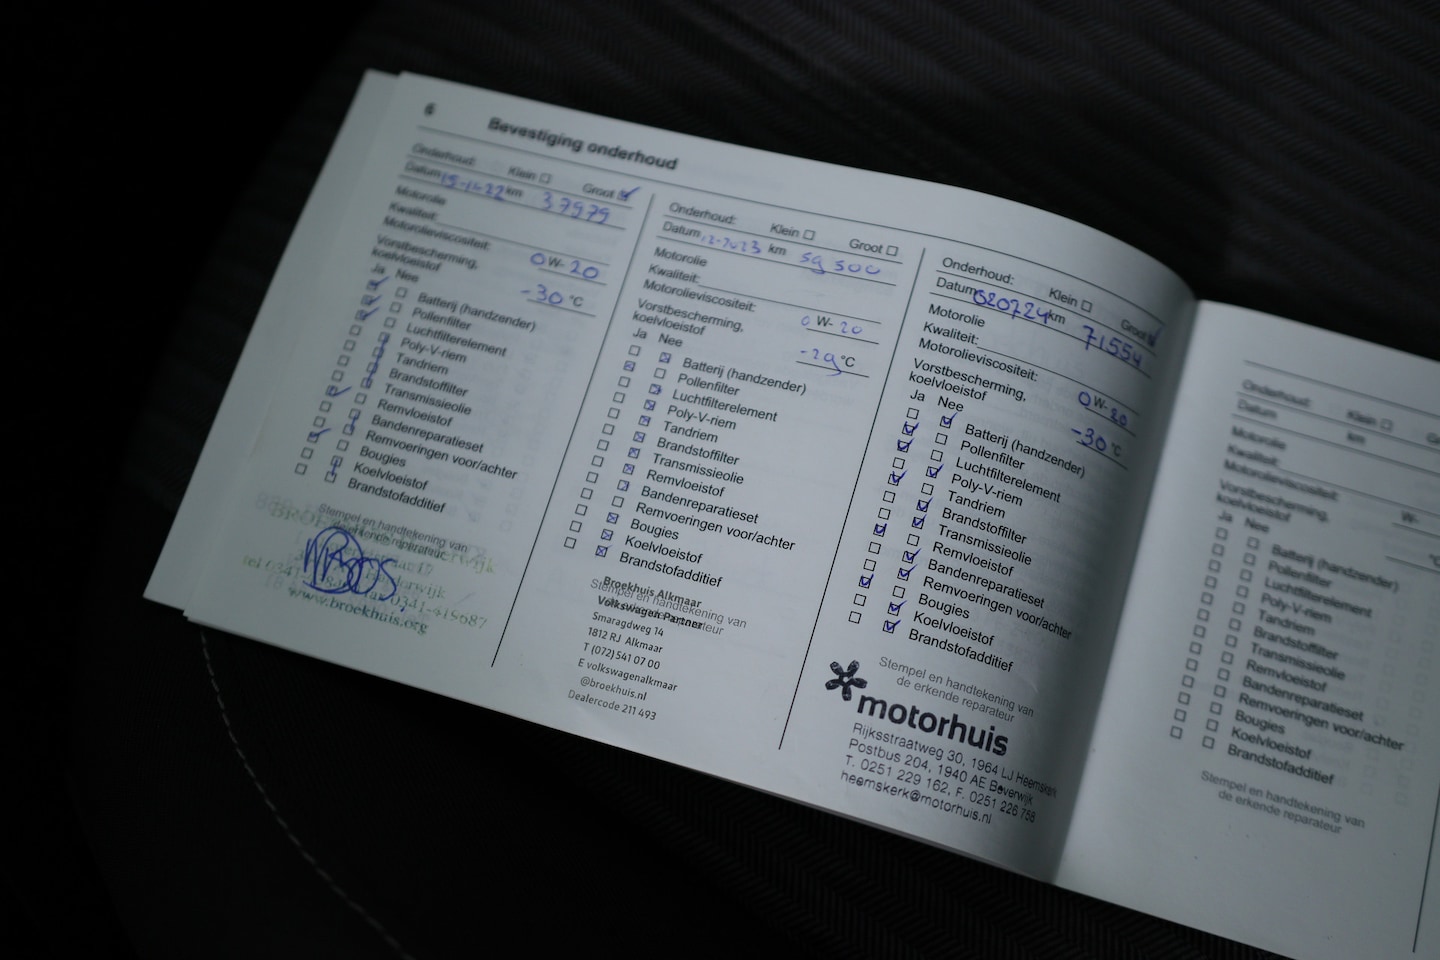 6
Bevestiging onderhoud
Onderhoud: Klein Groot
Datum km 37979
Motorolie
Kwaliteit:
Motorolieviscositeit: 0W-20
Vorstbescherming,
koelvloeistof -30 °C
Ja Nee
Batterij (handzender)
Pollenfilter
Luchtfilterelement
Poly-V-riem
Tandriem
Brandstoffilter
Transmissieolie
Remvloeistof
Bandenreparatieset
Remvoeringen voor/achter
Bougies
Koelvloeistof
Brandstofadditief
Stempel en handtekening van
www.broekhuis.org
Onderhoud: Klein Groot
Datum 12-2023 km 59 500
Motorolie
Kwaliteit:
Motorolieviscositeit: 0 W- 20
Vorstbescherming,
koelvloeistof -29 °C
Ja Nee
Batterij (handzender)
Pollenfilter
Luchtfilterelement
Poly-V-riem
Tandriem
Brandstoffilter
Transmissieolie
Remvloeistof
Bandenreparatieset
Remvoeringen voor/achter
Bougies
Koelvloeistof
Brandstofadditief
Stempel en handtekening van
Broekhuis Alkmaar
Volkswagen Partner
Smaragdweg 14
1812 RJ Alkmaar
T (072) 541 07 00
E volkswagenalkmaar
@broekhuis.nl
Dealercode 211 493
Onderhoud: Klein Groot
Datum 020724 km 71554
Motorolie
Kwaliteit:
Motorolieviscositeit: 0W-20
Vorstbescherming,
koelvloeistof -30 °C
Ja Nee
Batterij (handzender)
Pollenfilter
Luchtfilterelement
Poly-V-riem
Tandriem
Brandstoffilter
Transmissieolie
Remvloeistof
Bandenreparatieset
Remvoeringen voor/achter
Bougies
Koelvloeistof
Brandstofadditief
Stempel en handtekening van
de erkende reparateur
motorhuis
Rijksstraatweg 30, 1964 LJ Heemskerk
Postbus 204, 1940 AE Beverwijk
T. 0251 229 162, F. 0251 226 758
heemskerk@motorhuis.nl
Onderhoud: Klein
Datum km
Motorolie
Kwaliteit:
Motorolieviscositeit: W-
Vorstbescherming,
koelvloeistof °C
Ja Nee
Batterij (handzender)
Pollenfilter
Luchtfilterelement
Poly-V-riem
Tandriem
Brandstoffilter
Transmissieolie
Remvloeistof
Bandenreparatieset
Remvoeringen voor/achter
Bougies
Koelvloeistof
Brandstofadditief
Stempel en handtekening van
de erkende reparateur